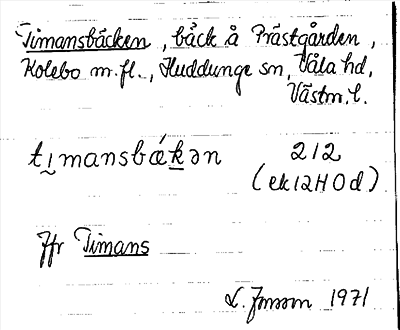 Timansbäcken, bäck å Prästgården,
Kolebo m.fl., Huddunge sn, Våla hd,
Västm. l.
timansbǽkən 212
(ek 12H0d)
Jfr Timans
L. Jonsson 1971